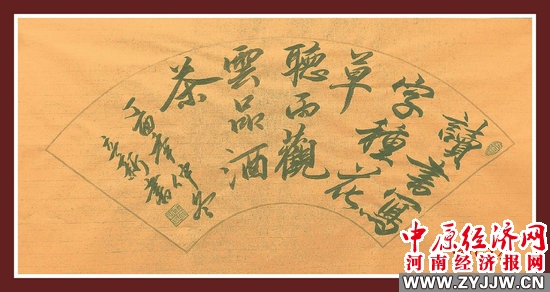 讀書寫
字種花
草
聽雨觀
雲品酒
茶
丁酉年仲冬
立新書
中原经济网
河南经济报网
WWW.ZYJJW.CN